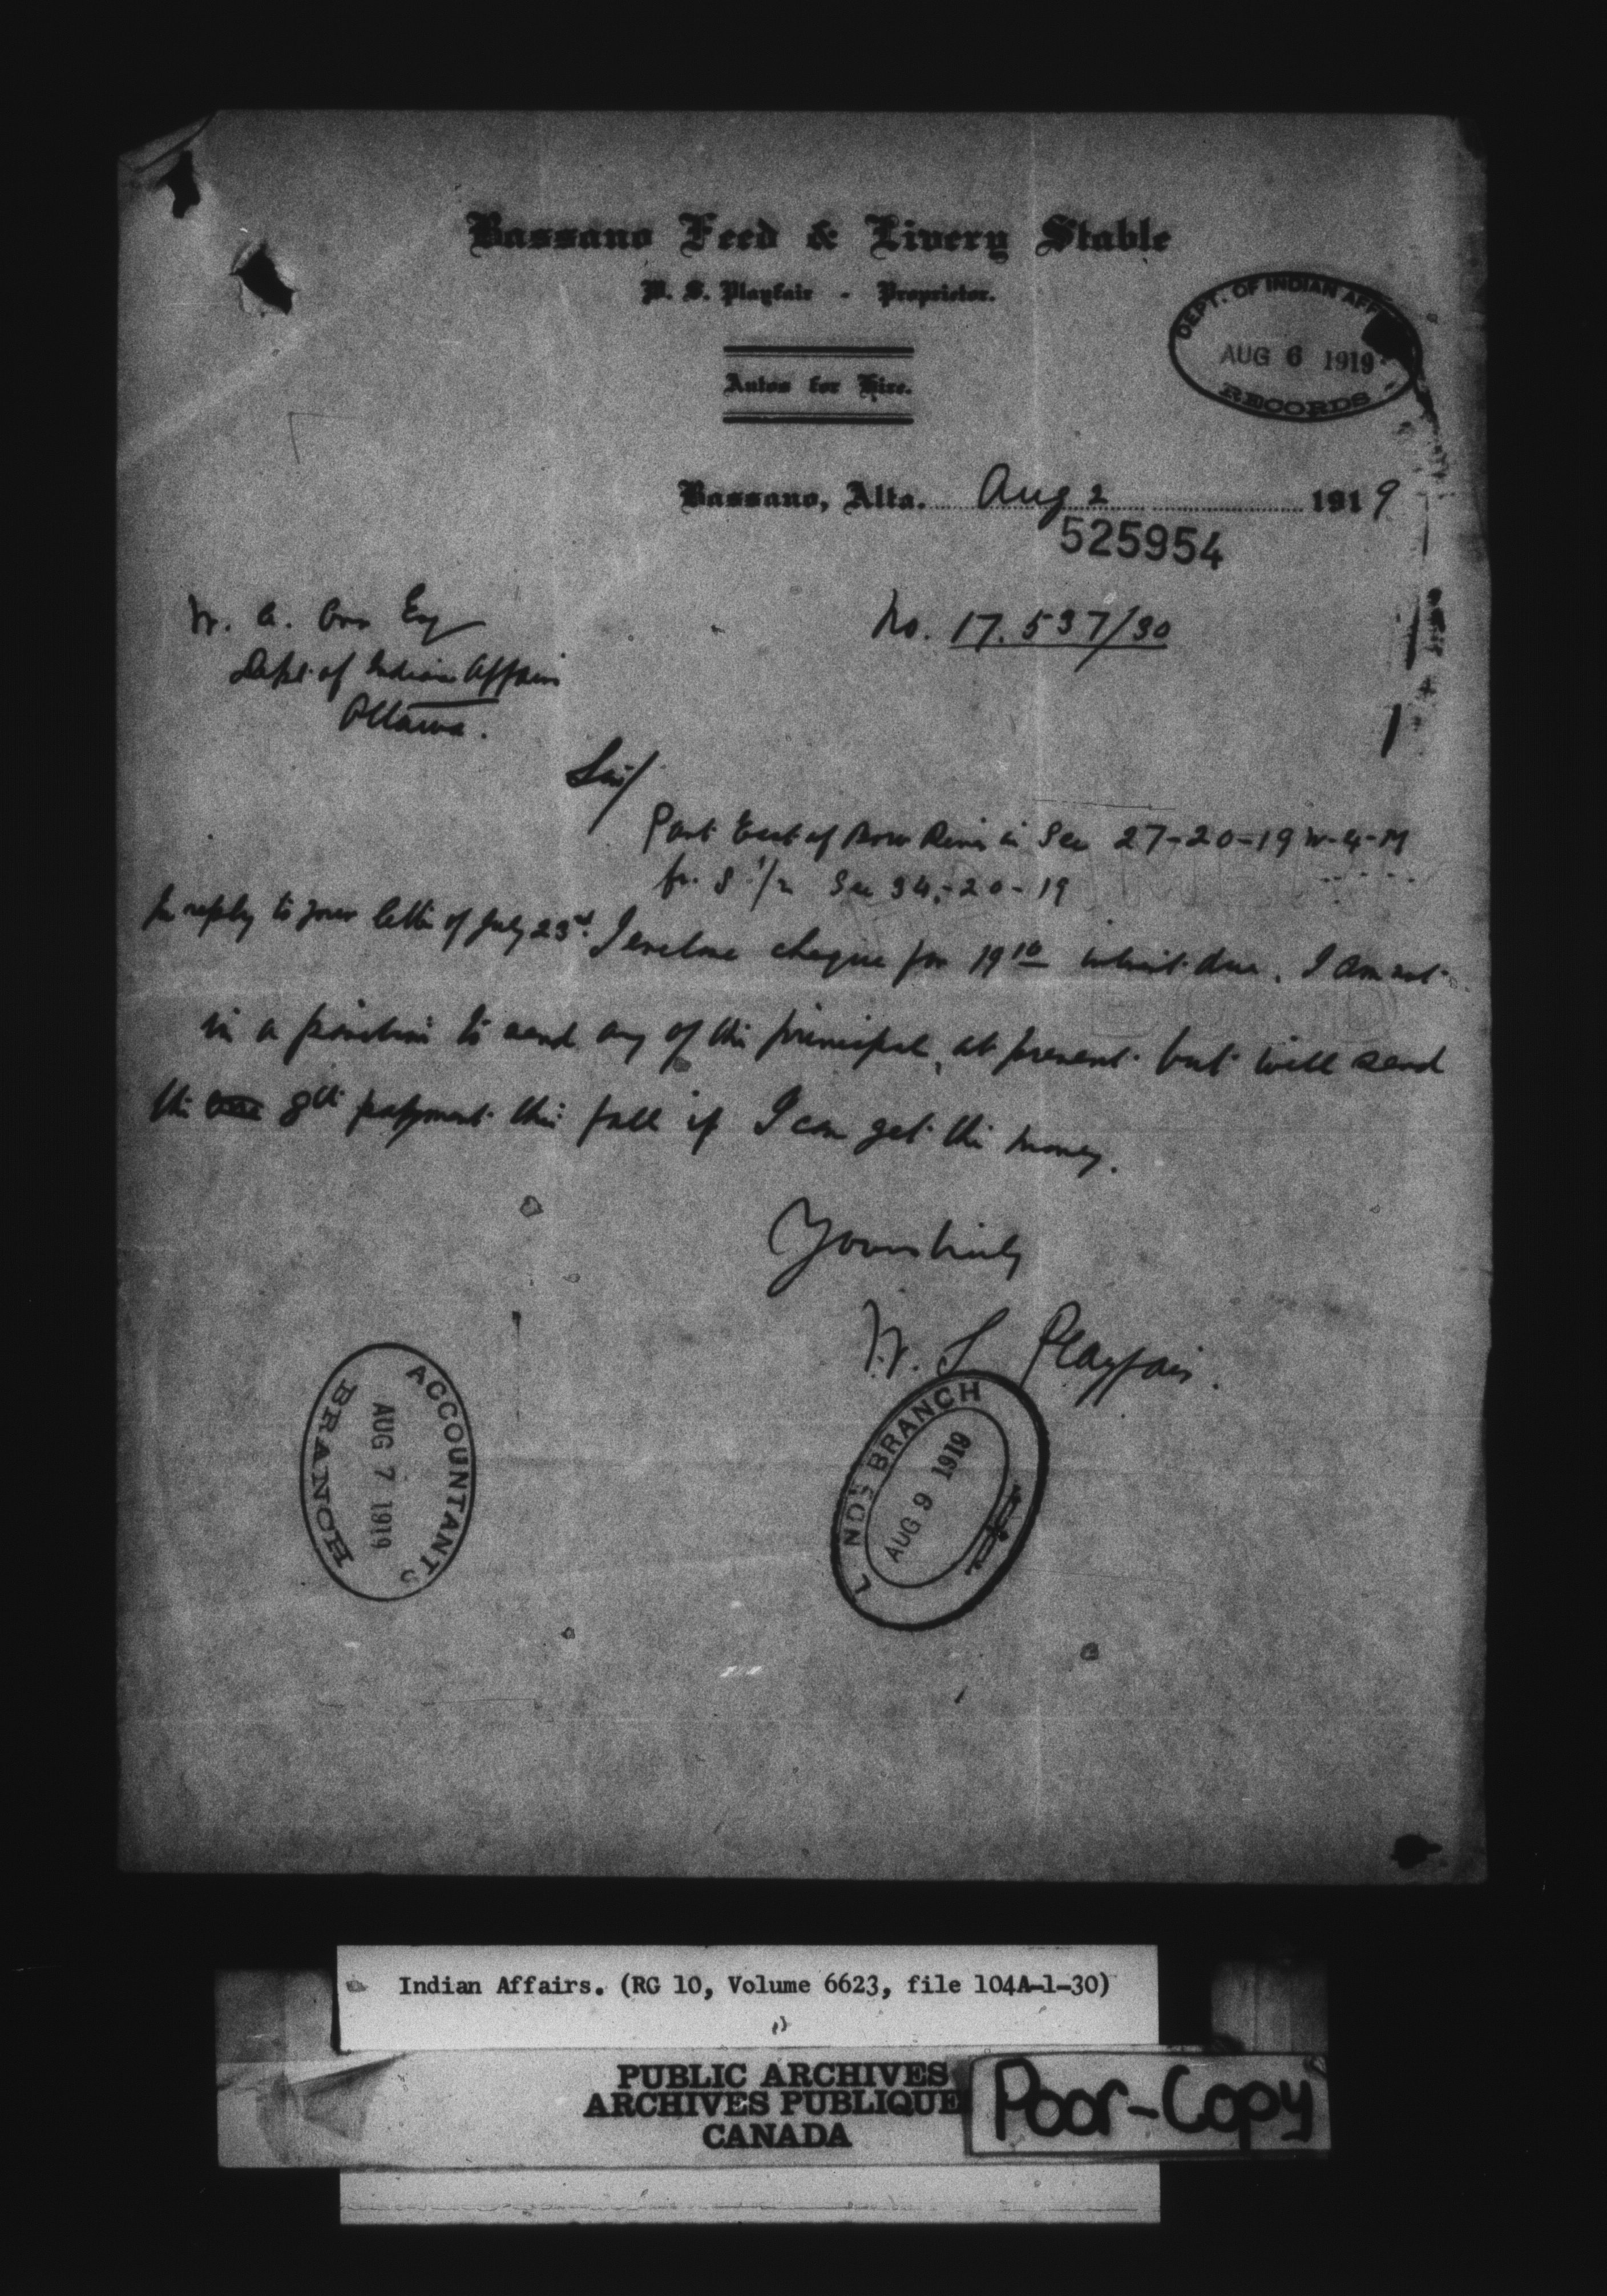 Bassano Feed & Livery Stable
W. S. Playfair - Proprietor.
Autos for Hire.
DEPT. OF INDIAN AFF
AUG 6 1919
RECORDS
Bassano, Alta. Aug 2 1919
525954
W. A. Orr Esq
No. 17.537/30
Dept of Indian Affairs
Ottawa.
Sir/
Part East of Bow River in Sec 27-20-19 W-4-M
fr. S 1/2 Sec 34-20-19
In reply to your letter of July 23rd. I enclose cheque for 19 10 interest due. I am not
in a position to send any of the principal, at present but will send
the 8th payment this fall if I can get the money.
Yours truly
W. S Playfair.
ACCOUNTANTS
AUG 7 1919
BRANCH
L NDS BRANCH
AUG 9 1919
Indian Affairs. (RG 10, Volume 6623, file 104A-1-30)
PUBLIC ARCHIVES
ARCHIVES PUBLIQUE
CANADA
Poor-Copy